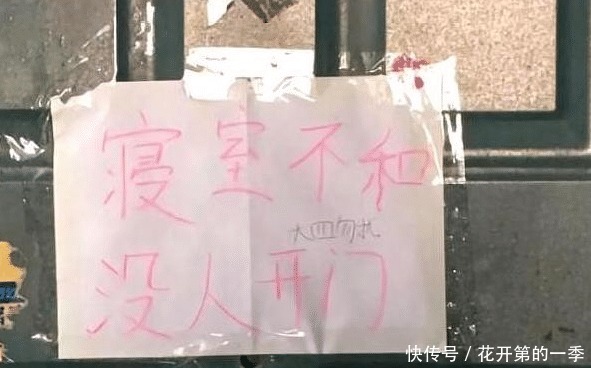 寝室不和
大四勿扰
没人开门
快传号 / 花开第的一季